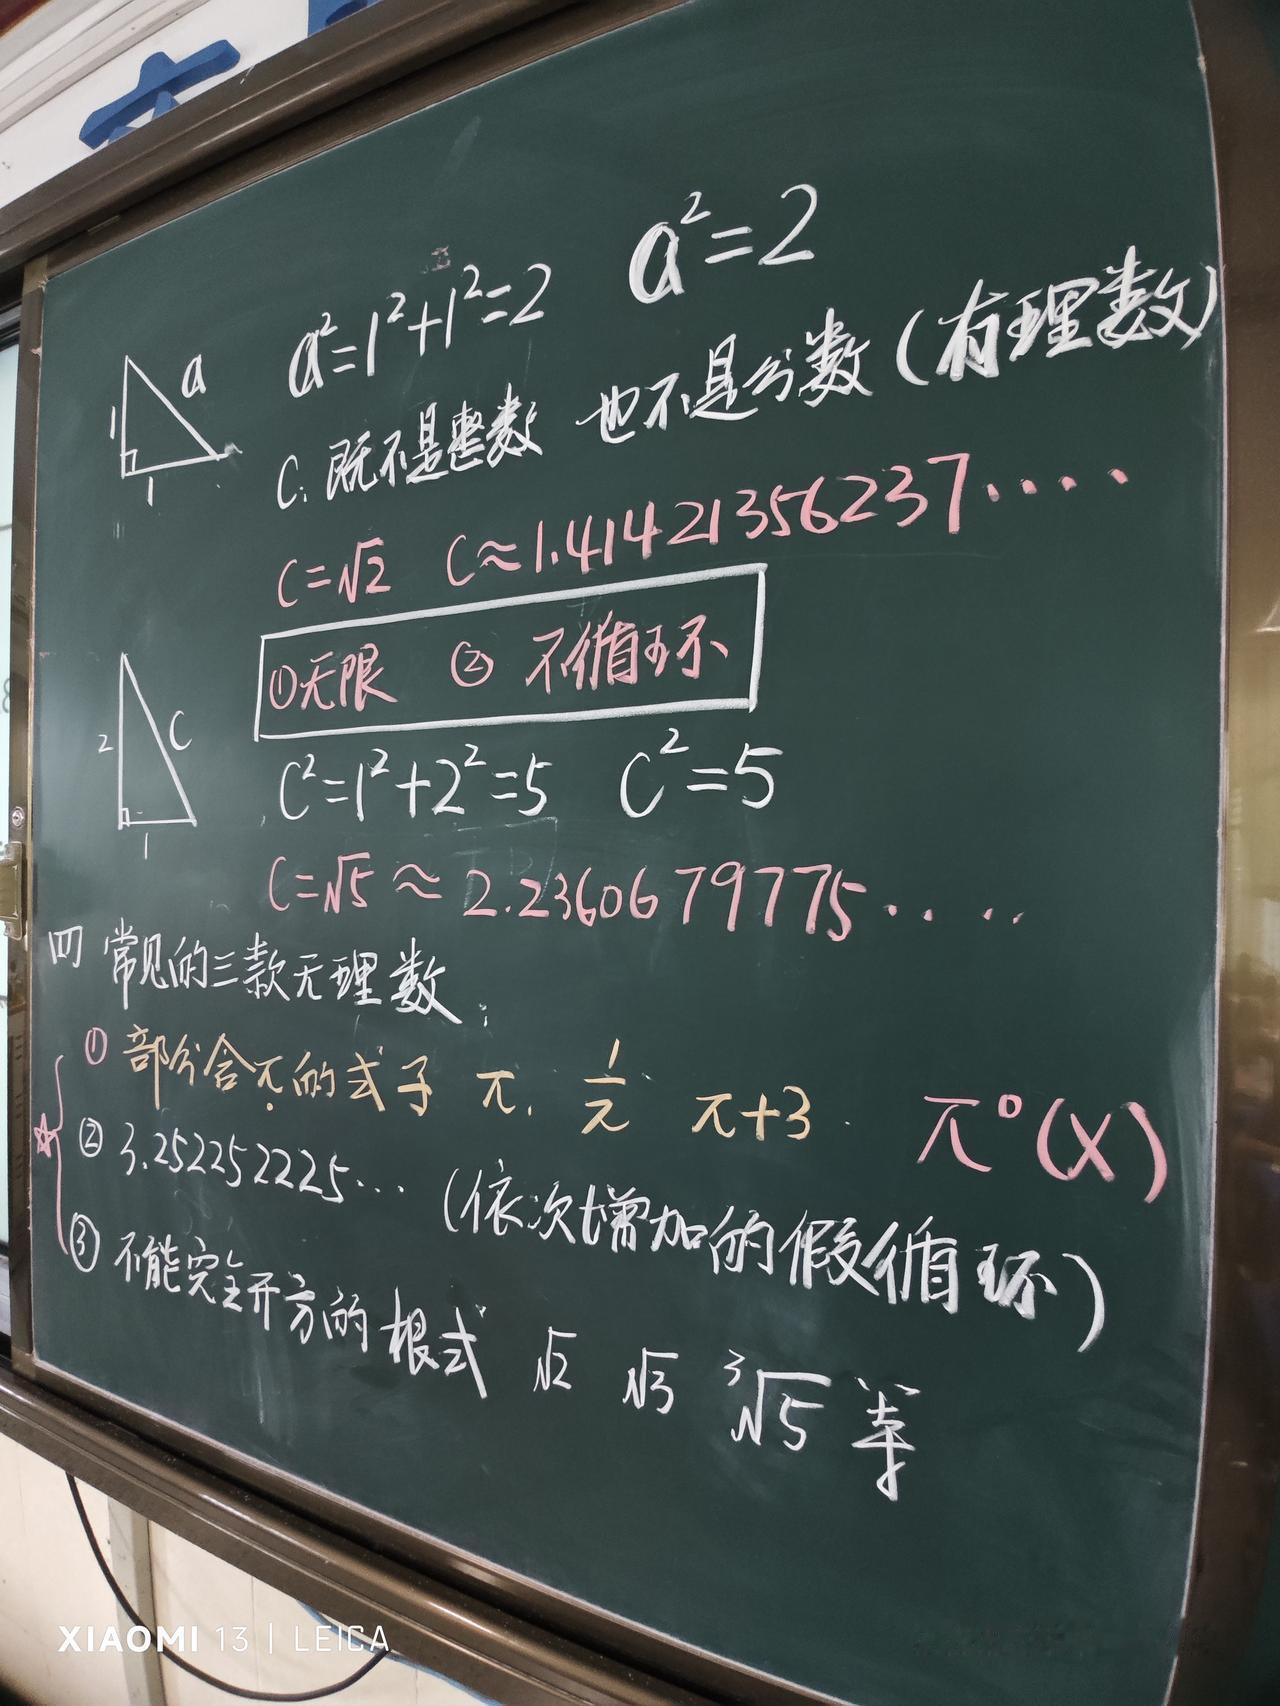 a²=1²+1²=2 a²=2
a
1
1
C: 既不是整数 也不是分数(有理数)
C=√2 C≈1.41421356237····
①无限 ②不循环
2
C
1
C²=1²+2²=5 C²=5
C=√5≈2.2360679775····
四 常见的三款无理数:
①部分含π的式子 π. 1/π π+3. π⁰(X)
②3.252252225··· (依次增加的假循环)
③不能完全开方的根式 √2 √3 ³√5 等
XIAOMI 13 | LEICA